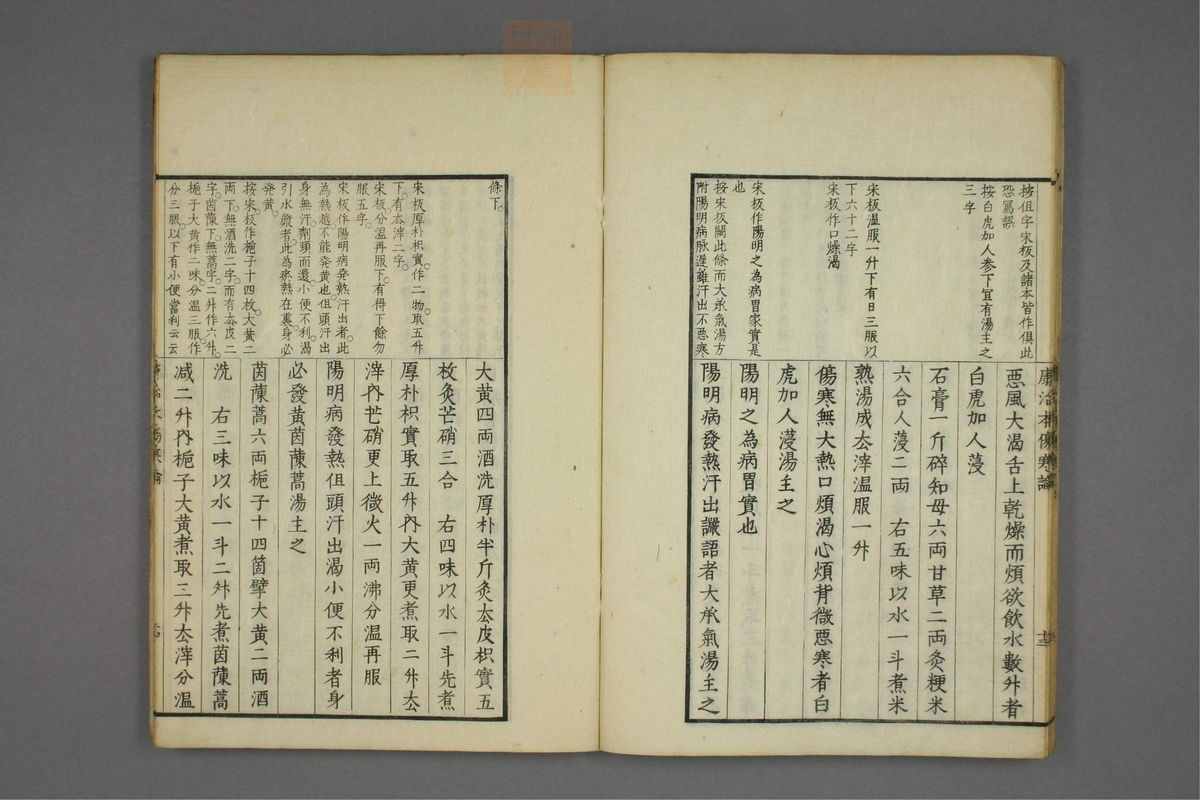 康治本傷寒論
十三
按但字宋板及諸本皆作俱此
恐寫誤
按白虎加人參下宜有湯主之
三字
宋板溫服一升下有日三服以
下六十二字
宋板作口燥渴
宋板作陽明之為病胃家實是
也
按宋板闕此條而大承氣湯方
附陽明病脉遲雖汗出不惡寒
惡風大渴舌上乾燥而煩欲飲水數升者
白虎加人蓡
石膏一斤碎知母六両甘草二両炙粳米
六合人蓡二両　右五味以水一斗煮米
熟湯成厺滓温服一升
傷寒無大熱口煩渴心煩背微惡寒者白
虎加人蓡湯主之
陽明之為病胃實也
陽明病發熱汗出讝語者大承氣湯主之
條下。
宋板厚朴枳實。作二物。取五升
下。有去滓二字。
宋板分温再服下。有得下餘勿
服五字。
宋板作陽明病発熱汗出者。此
為熱越不能発黄也但頭汗出
身無汗。劑頸而還。小便不利。渴
引水漿者。此為瘀熱在裏。身必
発黄。
按。宋板作梔子十四枚。大黄二
両下。無酒洗二字。而有去皮二
字。茵蔯下。無蒿字。二升作六升。
梔子大黄作二味。分温三服。作
分三服。以下有小便當利云云
大黄四両酒洗厚朴半斤炙厺皮枳實五
枚炙芒硝三合　右四味以水一斗先煮
厚朴枳實取五升內大黄更煮取二升厺
滓內芒硝更上微火一両沸分温再服
陽明病發熱但頭汗出渴小便不利者身
必發黄茵蔯蒿湯主之
茵蔯蒿六両梔子十四箇擘大黄二両酒
洗　右三味以水一斗二升先煮茵蔯蒿
减二升內梔子大黄煮取三升厺滓分温